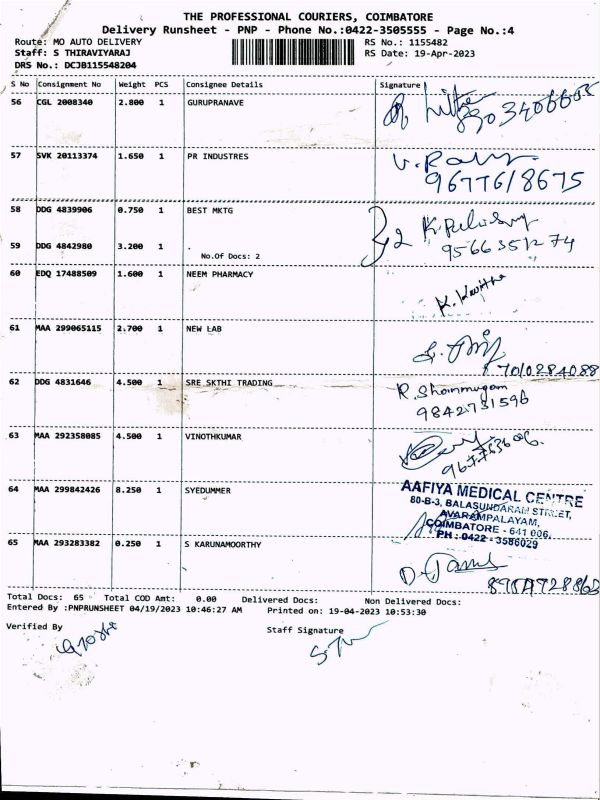 THE PROFESSIONAL COURIERS, COIMBATORE
Delivery Runsheet - PNP - Phone No.:0422-3505555 - Page No.:4
Route: MO AUTO DELIVERY RS No.: 1155482
Staff: S THIRAVIYARAJ RS Date: 19-Apr-2023
DRS No.: DCJB115548204
S No Consignment No Weight PCS Consignee Details Signature
56 CGL 2008340 2.800 1 GURUPRANAVE
57 SVK 20113374 1.650 1 PR INDUSTRES
9677618675
58 DDG 4839906 0.750 1 BEST MKTG
59 DDG 4842980 3.200 1
No.Of Docs: 2
9566351274
60 EDQ 17488509 1.600 1 NEEM PHARMACY
61 MAA 299065115 2.700 1 NEW LAB
7010284088
62 DDG 4831646 4.500 1 SRE SKTHI TRADING
R. Shanmugam
9842731596
63 MAA 292358085 4.500 1 VINOTHKUMAR
64 MAA 299842426 8.250 1 SYEDUMMER
AAFIYA MEDICAL CENTRE
80-B-3, BALASUNDARAM STREET,
AVARAMPALAYAM,
COIMBATORE - 641 006.
PH : 0422 - 3586029
65 MAA 293283382 0.250 1 S KARUNAMOORTHY
Total Docs: 65 Total COD Amt: 0.00 Delivered Docs: Non Delivered Docs:
Entered By :PNPRUNSHEET 04/19/2023 10:46:27 AM Printed on: 19-04-2023 10:53:30
Verified By Staff Signature